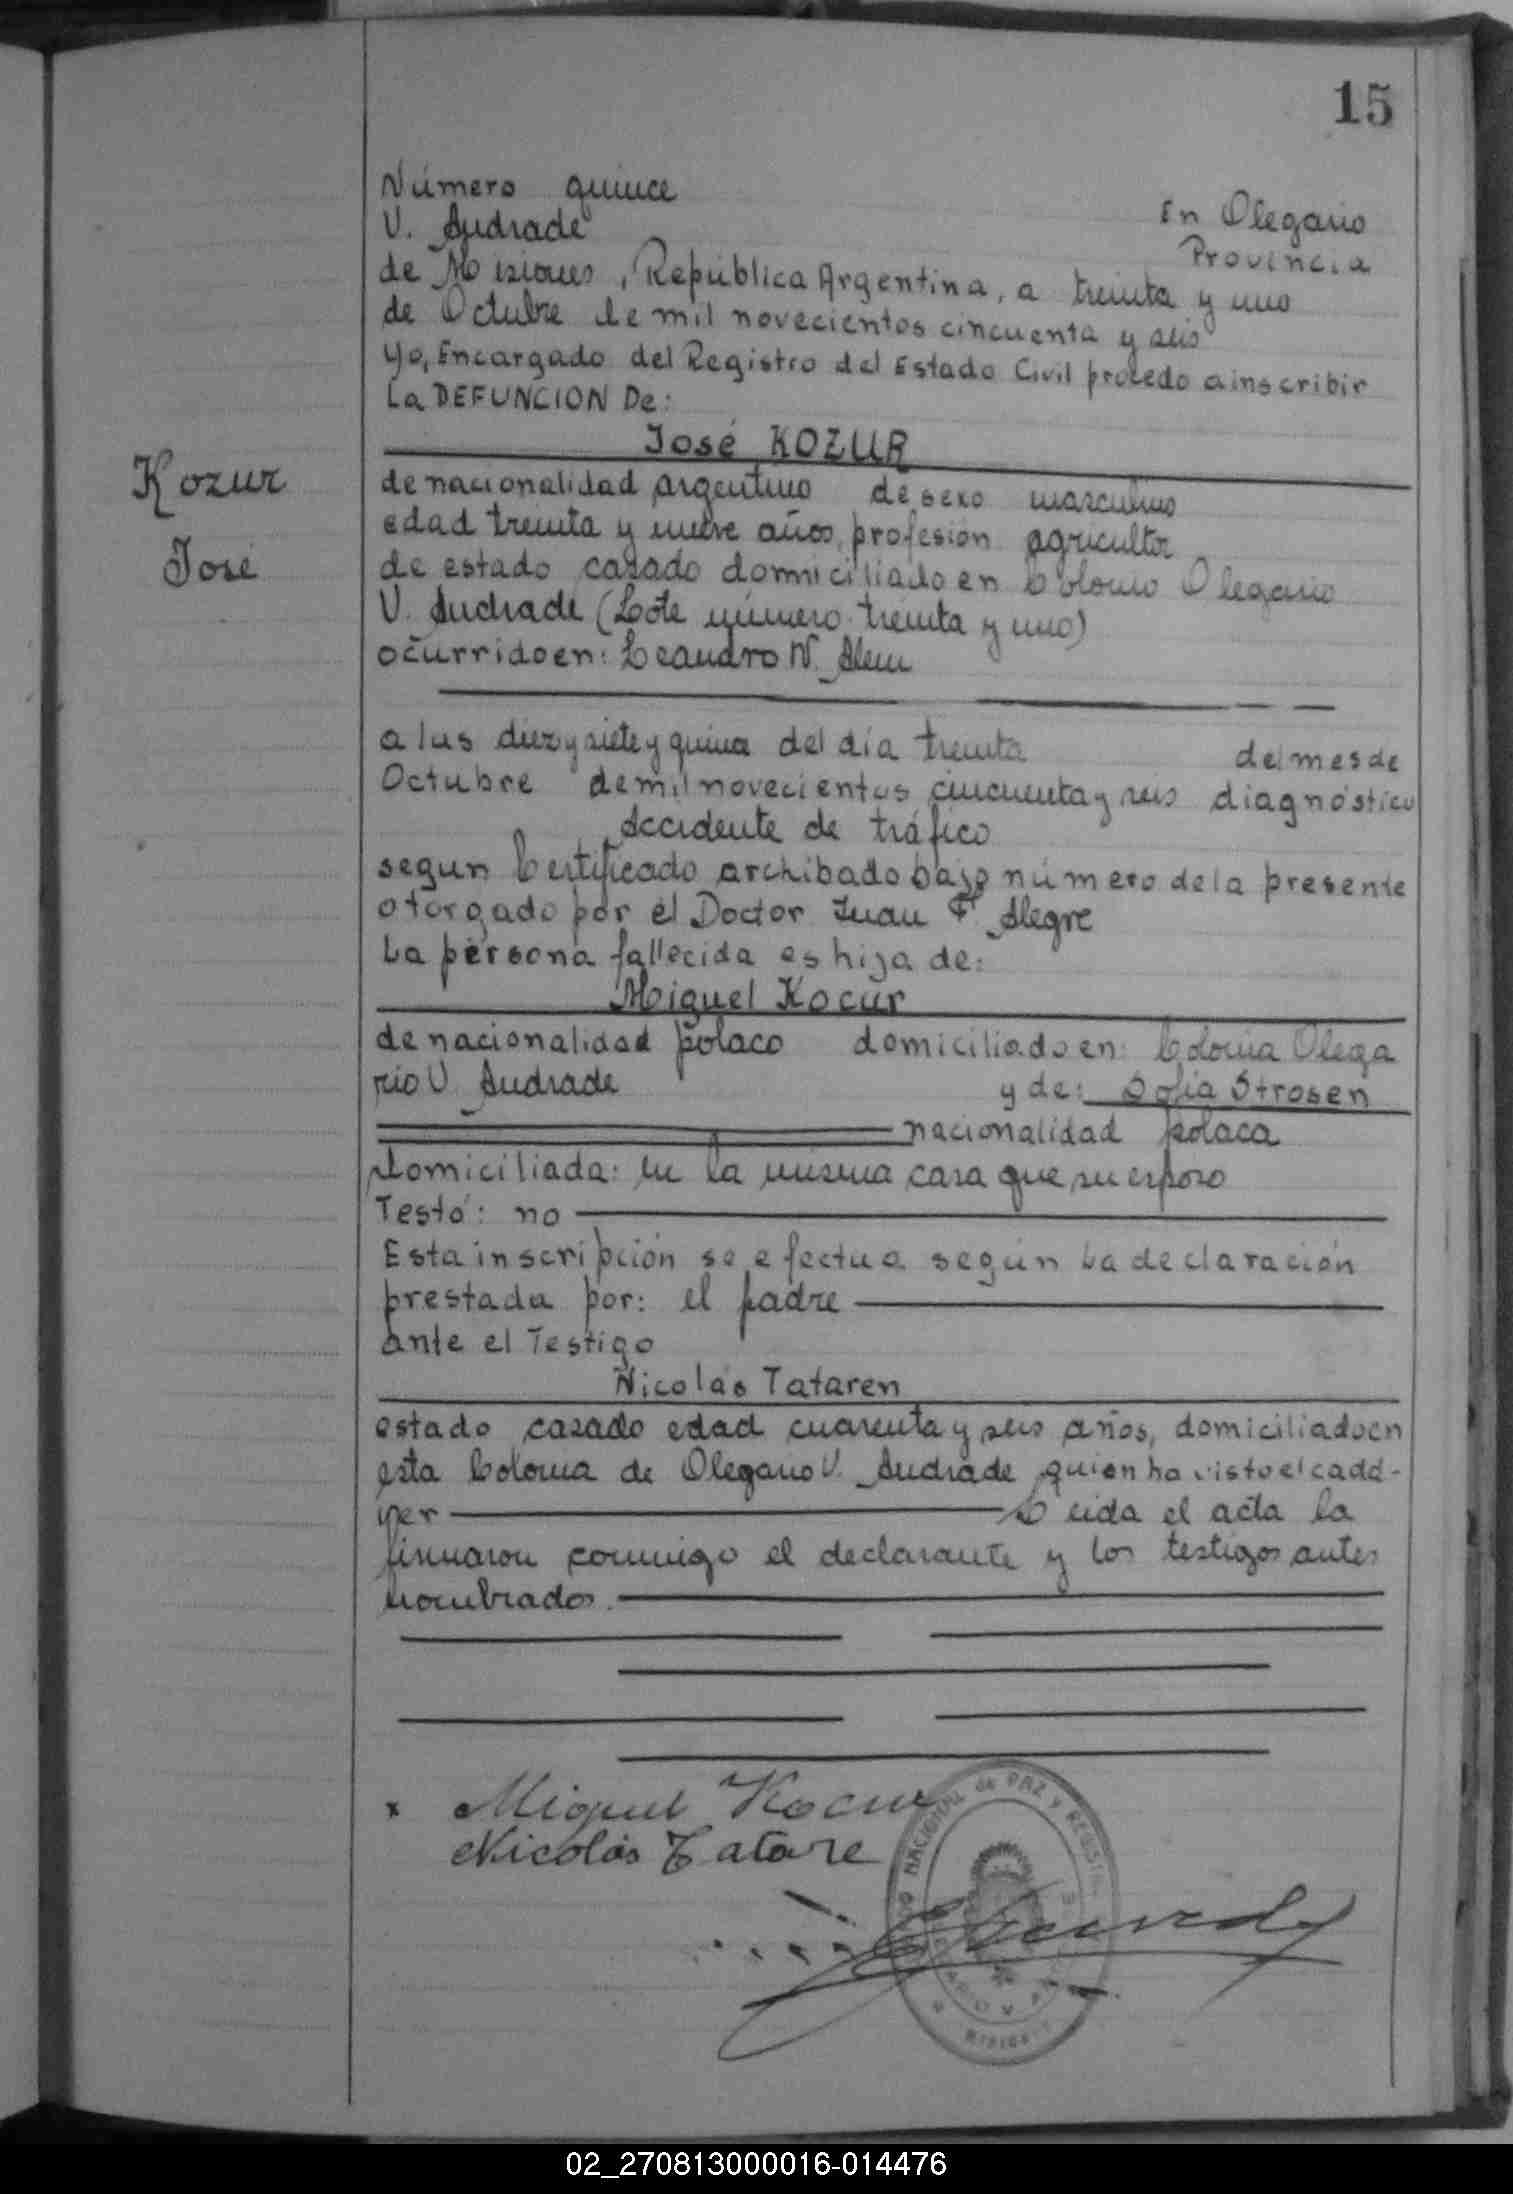 15
Número quince
En Olegario
V. Andrade
Provincia
de Misiones, República Argentina, a treinta y uno
de Octubre de mil novecientos cincuenta y seis
Yo, Encargado del Registro del Estado Civil procedo a inscribir
La DEFUNCION De:
José KOZUR
Kozur
José
de nacionalidad argentino de sexo masculino
edad treinta y nueve años, profesión agricultor
de estado casado domiciliado en Colonia Olegario
V. Andrade (Lote número treinta y uno)
ocurrido en: Leandro N. Alem
a las diez y siete y quince del día treinta del mes de
Octubre de mil novecientos cincuenta y seis diagnóstico
Accidente de tráfico
segun Certificado archibado bajo número de la presente
otorgado por el Doctor Juan F. Alegre
La persona fallecida es hija de:
Miguel Kocur
de nacionalidad polaco domiciliado en: Colonia Olega
rio V. Andrade y de: Sofia Strosen
nacionalidad polaca
Domiciliada: en la misma casa que su esposo
Testó: no
Esta inscripción se efectua según La declaración
prestada por: el padre
ante el Testigo
Nicolás Tataren
estado casado edad cuarenta y seis años, domiciliado en
esta Colonia de Olegario V. Andrade quien ha visto el cadá-
ver Leida el acta la
firmaron conmigo el declarante y los testigos antes
nombrados.
x Miguel Kocur
Nicolás Tatare
NACIONAL de PAZ y REGISTRO
MISIONES
02_270813000016-014476